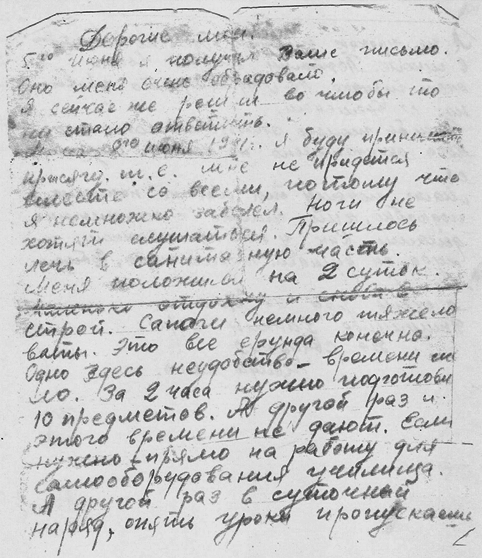 Дорогие мои.
5го июня я получил Ваше письмо.
Оно меня очень обрадовало.
Я сейчас же решил во чтобы то
ни стало ответить.
июня я буду принимать
присягу. т.е. мне не придется
вместе со всеми, потому что
я немножко заболел. Ноги не
хотят слушаться. Пришлось
лечь в санитарную часть.
Меня положили на 2 суток.
отдохну и снова в
строй. Сапоги немного тяжело
ваты. Это все ерунда конечно.
Одно здесь неудобство времени
За 2 часа нужно подготови
10 предметов. А другой раз и
этого времени не дают. Если
нужно прямо на работу для
самооборудования училища.
А другой раз в суточный
наряд, опять уроки пропускаешь